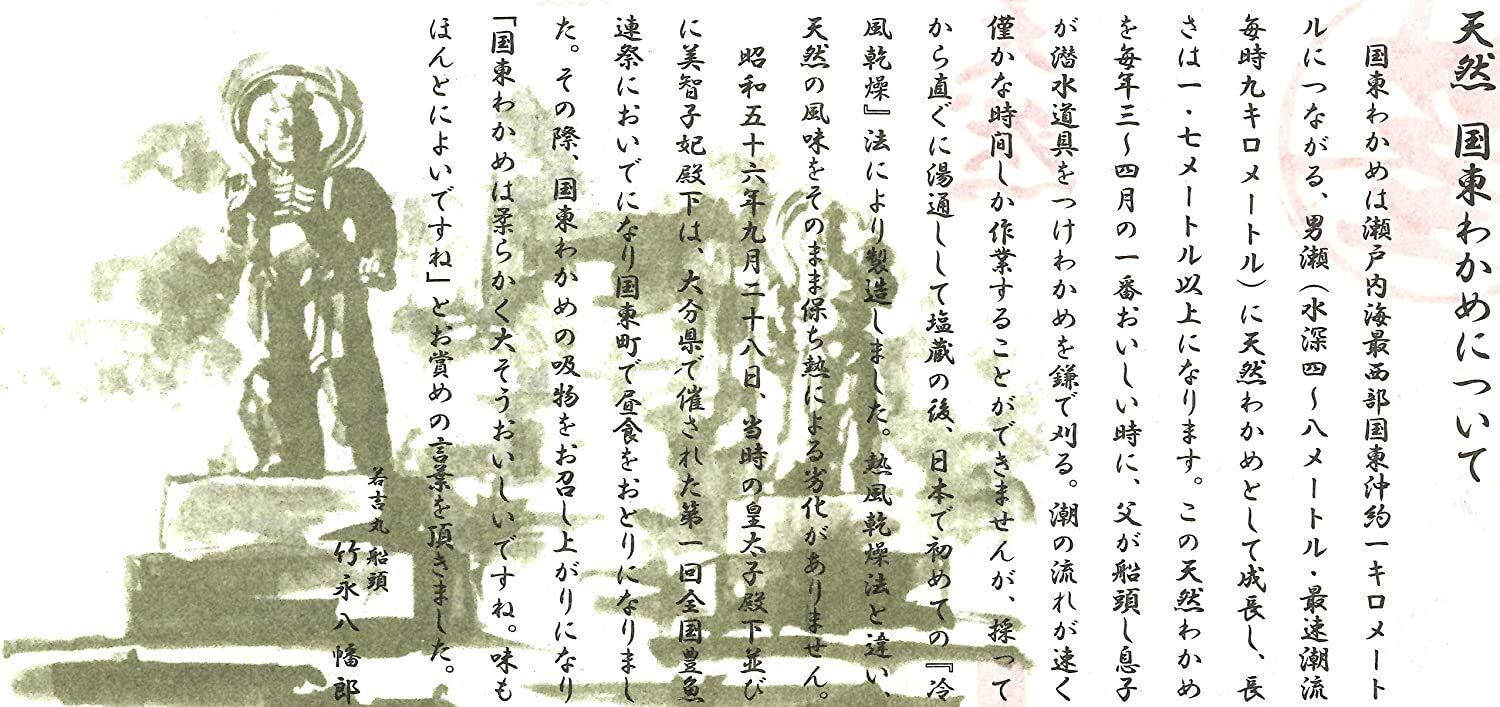 天然 国東わかめについて
国東わかめは瀬戸内海最西部国東沖約一キロメート
ルにつながる、男瀬(水深四～八メートル・最速潮流
毎時九キロメートル)に天然わかめとして成長し、長
さは一・七メートル以上になります。この天然わかめ
を毎年三～四月の一番おいしい時に、父が船頭し息子
が潜水道具をつけわかめを鎌で刈る。潮の流れが速く
僅かな時間しか作業することができませんが、採って
から直ぐに湯通しして塩蔵の後、日本で初めての『冷
風乾燥』法により製造しました。熱風乾燥法と違い、
天然の風味をそのまま保ち熱による劣化がありません。
昭和五十六年九月二十八日、当時の皇太子殿下並び
に美智子妃殿下は、大分県で催された第一回全国豊魚
連祭においでになり国東町で昼食をおとりになりまし
た。その際、国東わかめの吸物をお召し上がりになり
「国東わかめは柔らかく大そうおいしいですね。味も
ほんとによいですね」とお賞めの言葉を頂きました。
若吉丸 船頭
竹永八幡郎